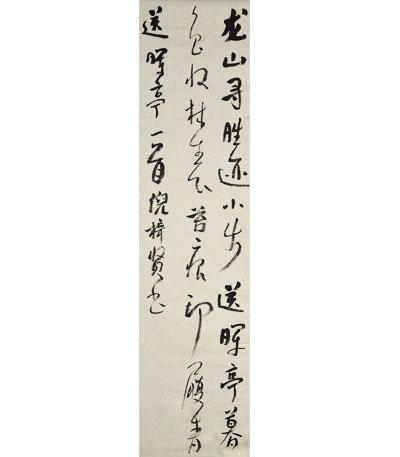 龙山寻胜迹小步送晖亭暮
色收林苔痕印屐青
送晖亭一首倪贤书